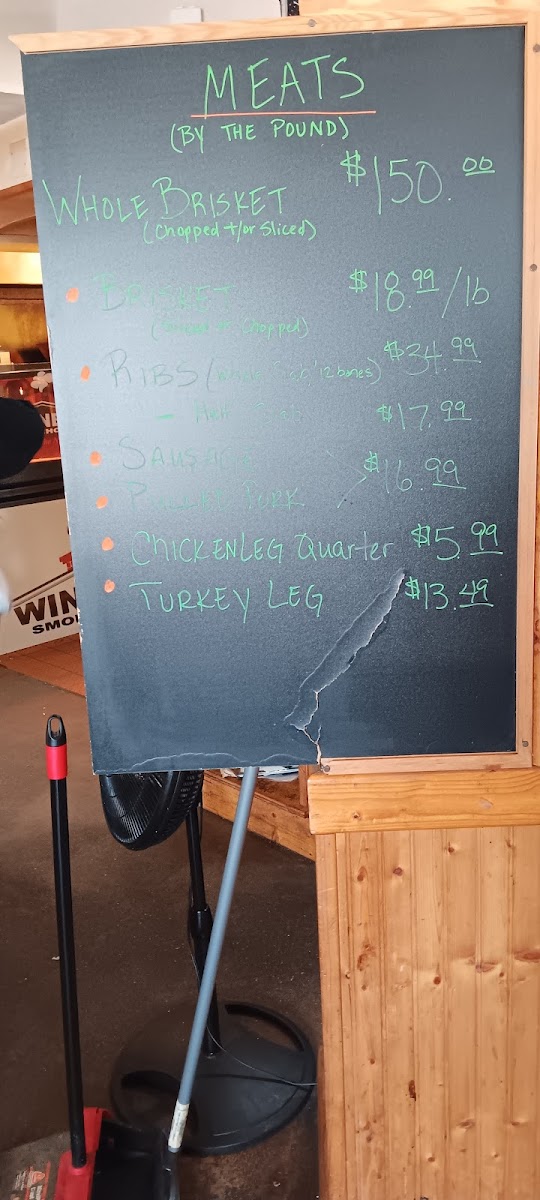 MEATS
(BY THE POUND)
WHOLE BRISKET $150.00
(Chopped +/or Sliced)
BRISKET $18.99/lb
(Sliced or Chopped)
RIBS (Whole 12 bones) $34.99
- Half $17.99
SAUSAGE
PULLED PORK $16.99
CHICKEN LEG Quarter $5.99
TURKEY LEG $13.49
WIN
SMO